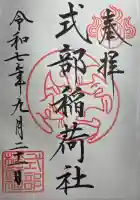 奉拝
式部稲荷社
令和七年九月二十一日